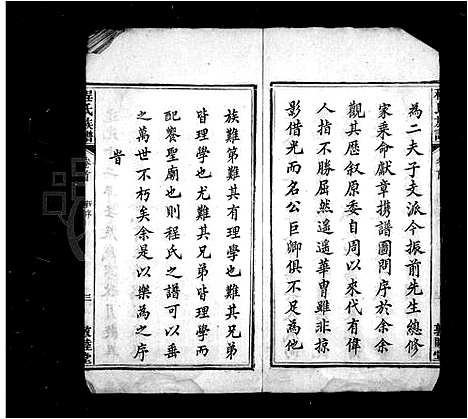 為二夫子支派今振前先生總修
家乘命獻章携譜圖問序於余余
觀其歷叙原委自周以來代有偉
人指不勝屈然遥遥華胄雖非掠
影借光而名公巨卿俱不足為他
族難第難其有理學也難其兄弟
皆理學也尤難其兄弟皆理學而
配饗聖廟也則程氏之譜可以垂
之萬世不朽矣余是以樂為之序
旹
程氏族譜
卷首
三
敦睦堂